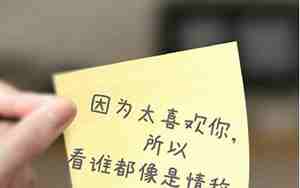 因为太喜欢你，
所以
看谁都像是情